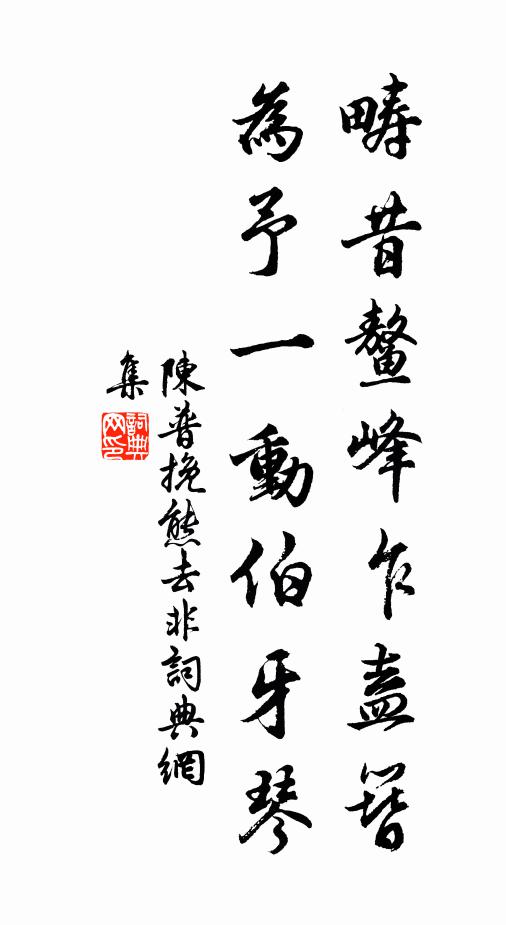 疇昔鰲峰乍盍簪
為予一動伯牙琴
陳普挽熊去非詞典網
集
詞典网印